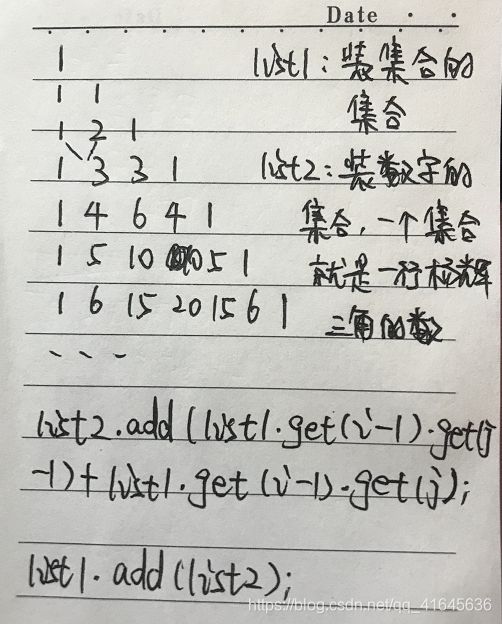 Date
1
list1：装集合的
1 1
集合
1 2 1
1 3 3 1
list2：装数字的
1 4 6 4 1
集合，一个集合
1 5 10 10 5 1
就是一行杨辉
1 6 15 20 15 6 1
三角的数
list2.add(list1.get(i-1).get(j
-1)+list1.get(i-1).get(j);
list1.add(list2);
https://blog.csdn.net/qq_41645636